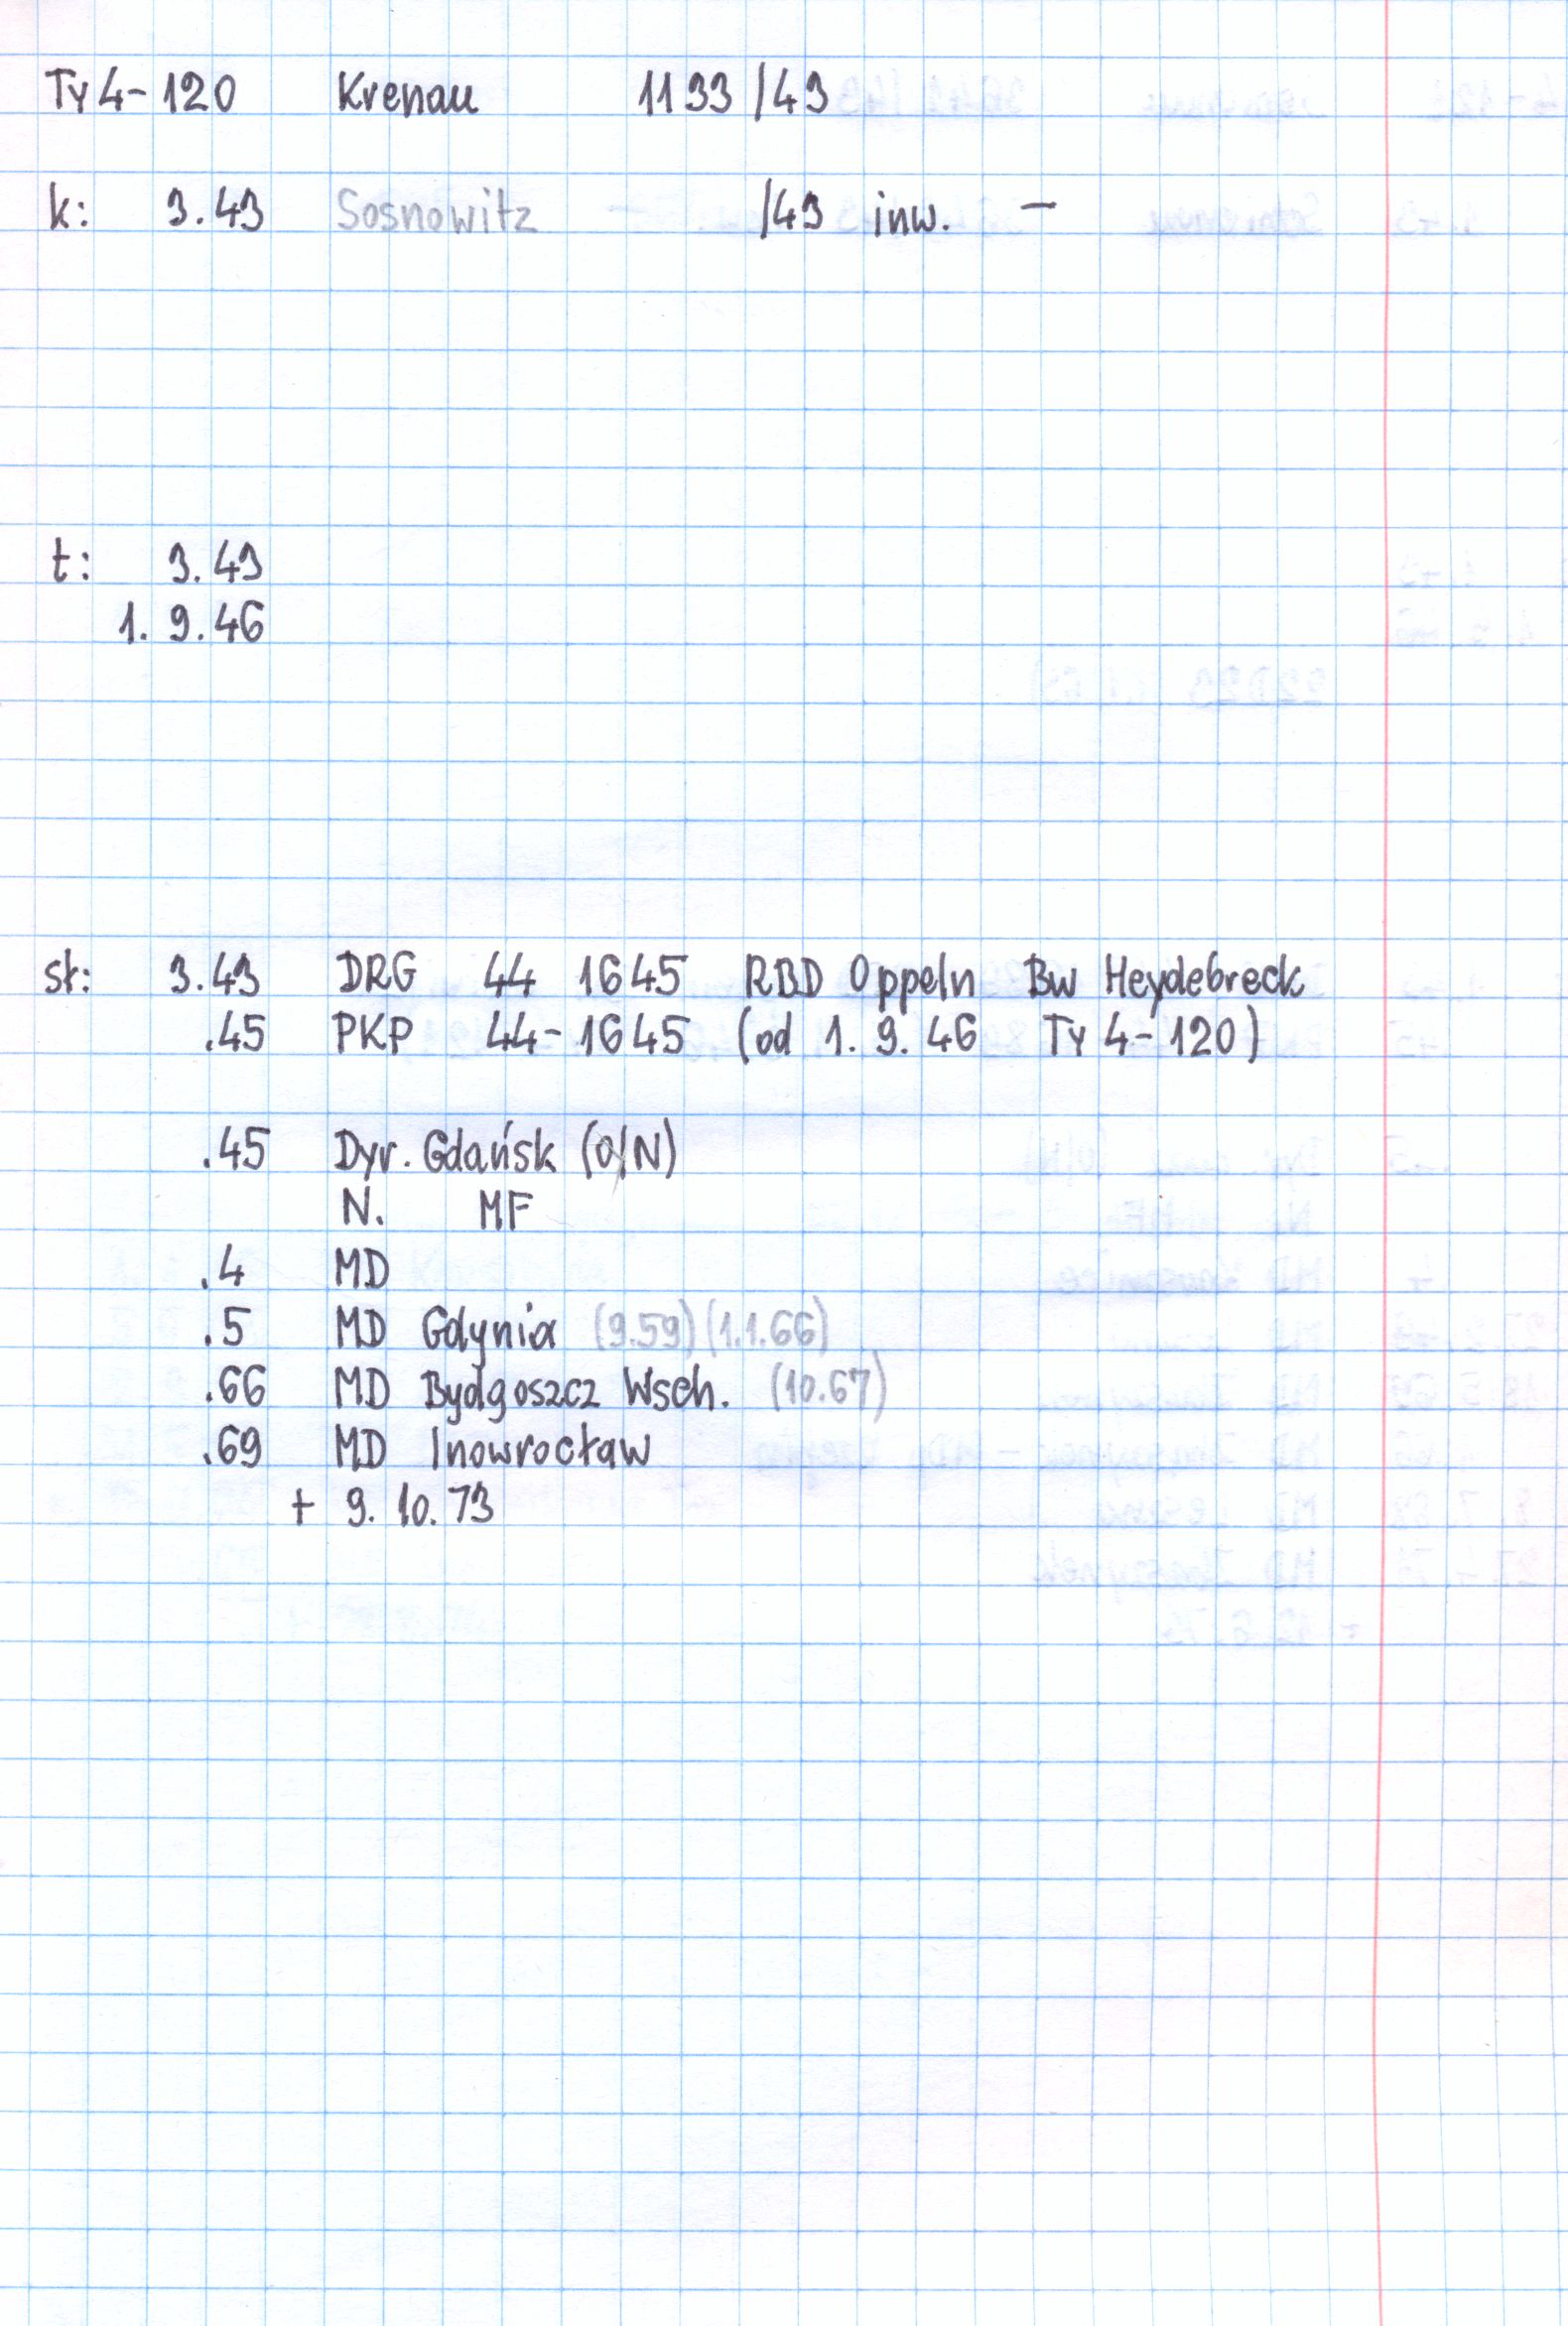 Ty4-120 Krenau 1133/43
k: 3.43 Sosnowitz /43 inw. -
t: 3.43
1. 9.46
st: 3.43 DRG 44 1645 RBD Oppeln Bw Heydebreck
.45 PKP 44-1645 (od 1. 9. 46 Ty 4-120)
.45 Dyr. Gdańsk (O/N)
N. MF
.4 MD
.5 MD Gdynia (9.59) (1.1.66)
.66 MD Bydgoszcz Wsch. (10.67)
.69 MD Inowrocław
+ 9. 10. 73